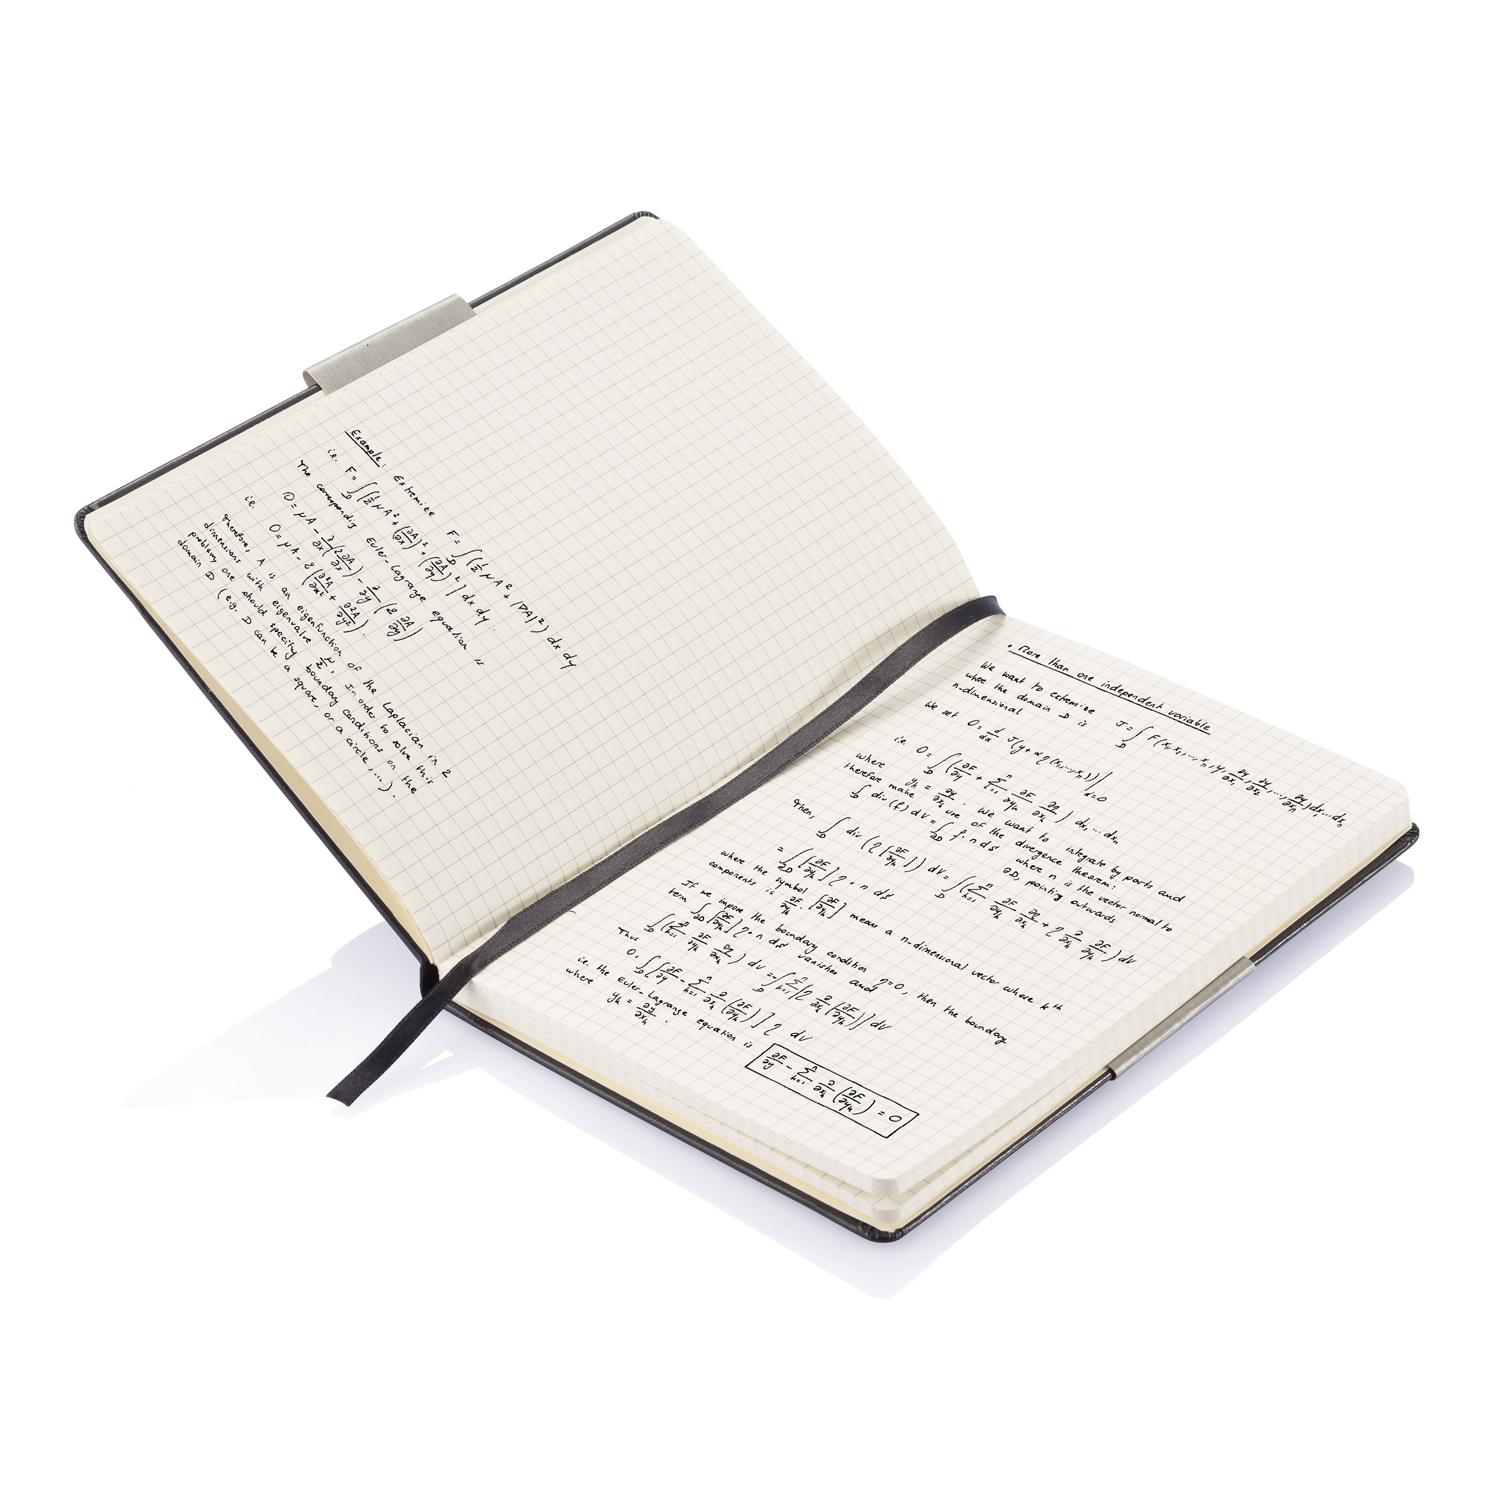 Example: Extremize F = ∫_D (½ μA² + |∇A|²) dx dy
i.e. F = ∫_D [½ μA² + (∂A/∂x)² + (∂A/∂y)²] dx dy.
The corresponding Euler-Lagrange equation is
0 = μA - ∂/∂x (2 ∂A/∂x) - ∂/∂y (2 ∂A/∂y)
i.e. 0 = μA - 2 (∂²A/∂x² + ∂²A/∂y²).
Therefore, A is an eigenfunction of the Laplacian in 2
dimensions with eigenvalue μ/2. In order to solve this
problem, one should specify boundary conditions on the
domain D (e.g. D can be a square, or a circle, ...).
• More than one independent variable
We want to extremize J = ∫_D F(x₁, x₂, ..., xₙ, y, ∂y/∂x₁, ∂y/∂x₂, ..., ∂y/∂xₙ) dx₁ ... dxₙ
where the domain D is
n-dimensional
We set 0 = d/dα J(y + α η(x₁, ..., xₙ)) |α=0
i.e. 0 = ∫_D (∂F/∂y η + Σₖ₌₁ⁿ ∂F/∂yₖ ∂η/∂xₖ) dx₁ ... dxₙ
where yₖ = ∂y/∂xₖ. We want to integrate by parts and
therefore make use of the divergence theorem:
∫_D div(f) dV = ∫_∂D f · n dS where n is the vector normal to
∂D, pointing outwards
Then, ∫_D div(η [∂F/∂yₖ]) dV = ∫_D (Σₖ₌₁ⁿ ∂F/∂yₖ ∂η/∂xₖ + η ∂/∂xₖ ∂F/∂yₖ) dV
= ∫_∂D [∂F/∂yₖ] η · n dS
where the symbol [∂F/∂yₖ] means a n-dimensional vector where kth
components is ∂F/∂yₖ.
If we impose the boundary condition η=0, then the boundary
term ∫_∂D [∂F/∂yₖ] η · n dS vanishes and
∫_D (Σₖ₌₁ⁿ ∂F/∂yₖ ∂η/∂xₖ) dV = -∫_D Σₖ₌₁ⁿ [η ∂/∂xₖ (∂F/∂yₖ)] dV
Thus 0 = ∫_D [∂F/∂y - Σₖ₌₁ⁿ ∂/∂xₖ (∂F/∂yₖ)] η dV
i.e. the Euler-Lagrange equation is ∂F/∂y - Σₖ₌₁ⁿ ∂/∂xₖ (∂F/∂yₖ) = 0
where yₖ = ∂y/∂xₖ.